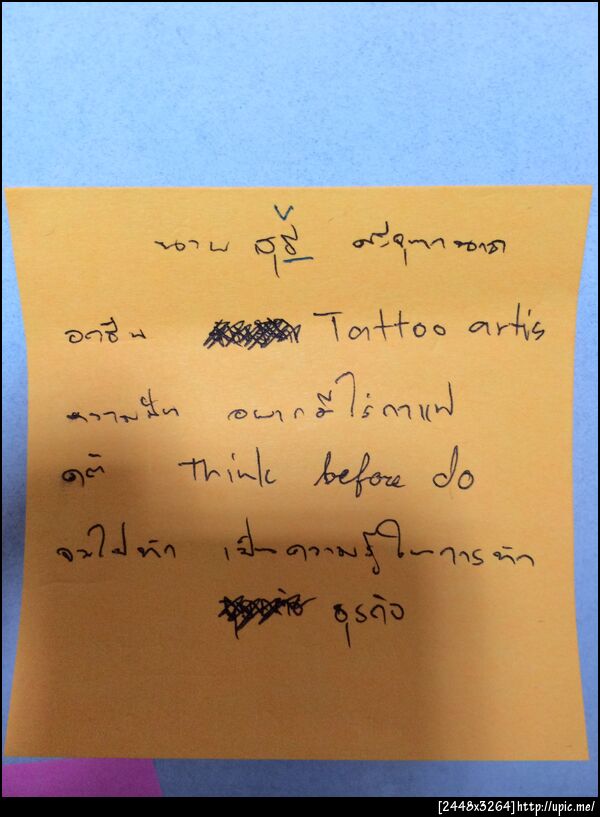 นาย สุธี
อาชีพ Tattoo artis
ความฝัน อยากมีไร่กาแฟ
คติ think before do
จบไปทำ เป็นความรู้ในการทำ
ธุรกิจ
[2448x3264]http://upic.me/